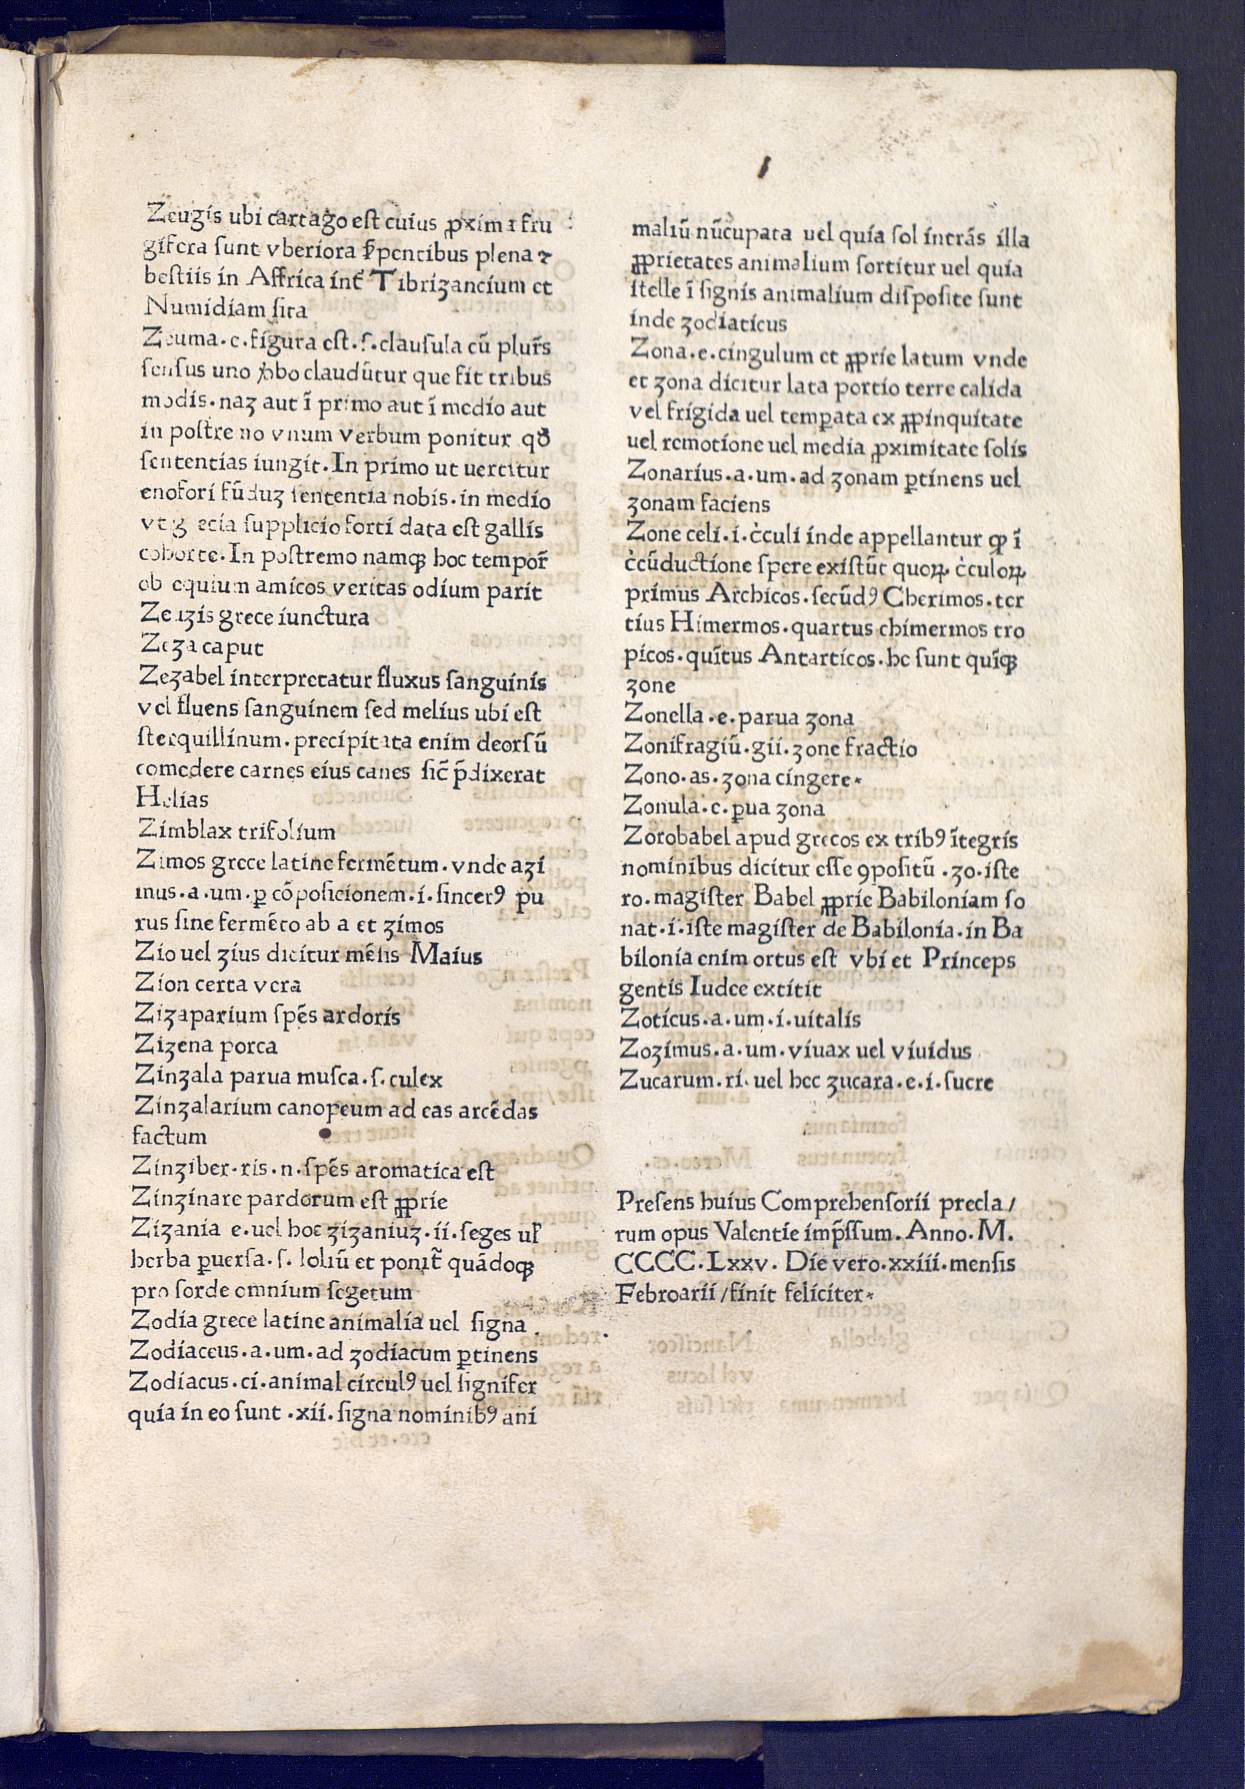 Zeugis ubi cartago est cuius ꝓxima fru
gifera sunt vberiora ẜpentibus plena ⁊
bestiis in Affrica int̃ Tibrizancium et
Numidiam sita
Zeuma.e.figura est.s.clausula cū plur̃s
sensus uno ꝟbo claudūtur que fit tribus
modis.naꝫ aut ī primo aut ī medio aut
in postremo vnum verbum ponitur qđ
sententias iungit.In primo ut uertitur
enofori fūduꝫ sententia nobis.in medio
vt grecia supplicio forti data est gallis
cohorte.In postremo namqꝫ hoc tempor̃
ob equium amicos veritas odium parit
Zeuzis grece iunctura
Zeza caput
Zezabel interpretatur fluxus sanguinis
vel fluens sanguinem sed melius ubi est
sterquillinum.precipitata enim deorsū
comedere carnes eius canes sic̃ p̄dixerat
Helias
Zimblax trifolium
Zimos grece latine fermētum.vnde azi
mus.a.um.ꝑ cōposicionem.i.sincerꝰ pu
rus sine fermēto ab a et zimos
Zio uel zius dicitur mēsis Maius
Zion certa vera
Zizaparium spēs ardoris
Zizena porca
Zinzala parua musca.s.culex
Zinzalarium canopeum ad eas arcēdas
factum
Zinziber.ris.n.spēs aromatica est
Zinzinare pardorum est ꝓprie
Zizania e.uel hoc zizaniuꝫ.ii.seges ul̃
herba ꝑuersa.s.loliū et ponit̃ quādoqꝫ
pro sorde omnium segetum
Zodia grece latine animalia uel signa
Zodiaceus.a.um.ad zodiacum ꝑtinens
Zodiacus.ci.animal circulꝰ uel signifer
quia in eo sunt .xii.signa nominibꝰ ani
maliū nūcupata uel quia sol intrās illa
ꝓprietates animalium sortitur uel quia
stelle ī signis animalium disposite sunt
inde zodiaticus
Zona.e.cingulum et ꝓprie latum vnde
et zona dicitur lata portio terre calida
vel frigida uel temꝑata ex ꝓpinquitate
uel remotione uel media ꝓximitate solis
Zonarius.a.um.ad zonam ꝑtinens uel
zonam faciens
Zone celi.i.c̉culi inde appellantur ꝙ ī
c̉cūductione spere existūt quoꝝ c̉culoꝝ
primus Archicos.secūdꝰ Cherimos.ter
tius Himermos.quartus chimermos tro
picos.quītus Antarticos.hc sunt quīqꝫ
zone
Zonella.e.parua zona
Zonifragiū.gii.zone fractio
Zono.as.zona cingere.
Zonula.e.ꝑua zona
Zorobabel apud grecos ex tribꝰ ītegris
nominibus dicitur esse ꝯpositū .zo.iste
ro.magister Babel ꝓprie Babiloniam so
nat.i.iste magister de Babilonia.in Ba
bilonia enim ortus est vbi et Princeps
gentis Iudee extitit
Zoticus.a.um.i.uitalis
Zozimus.a.um.viuax uel viuidus
Zucarum.ri.uel hec zucara.e.i.sucre
Presens huius Comprehensorii precla/
rum opus Valentie imp̄ssum.Anno.M.
CCCC.Lxxv. Die vero.xxiii.mensis
Februarii/finit feliciter.